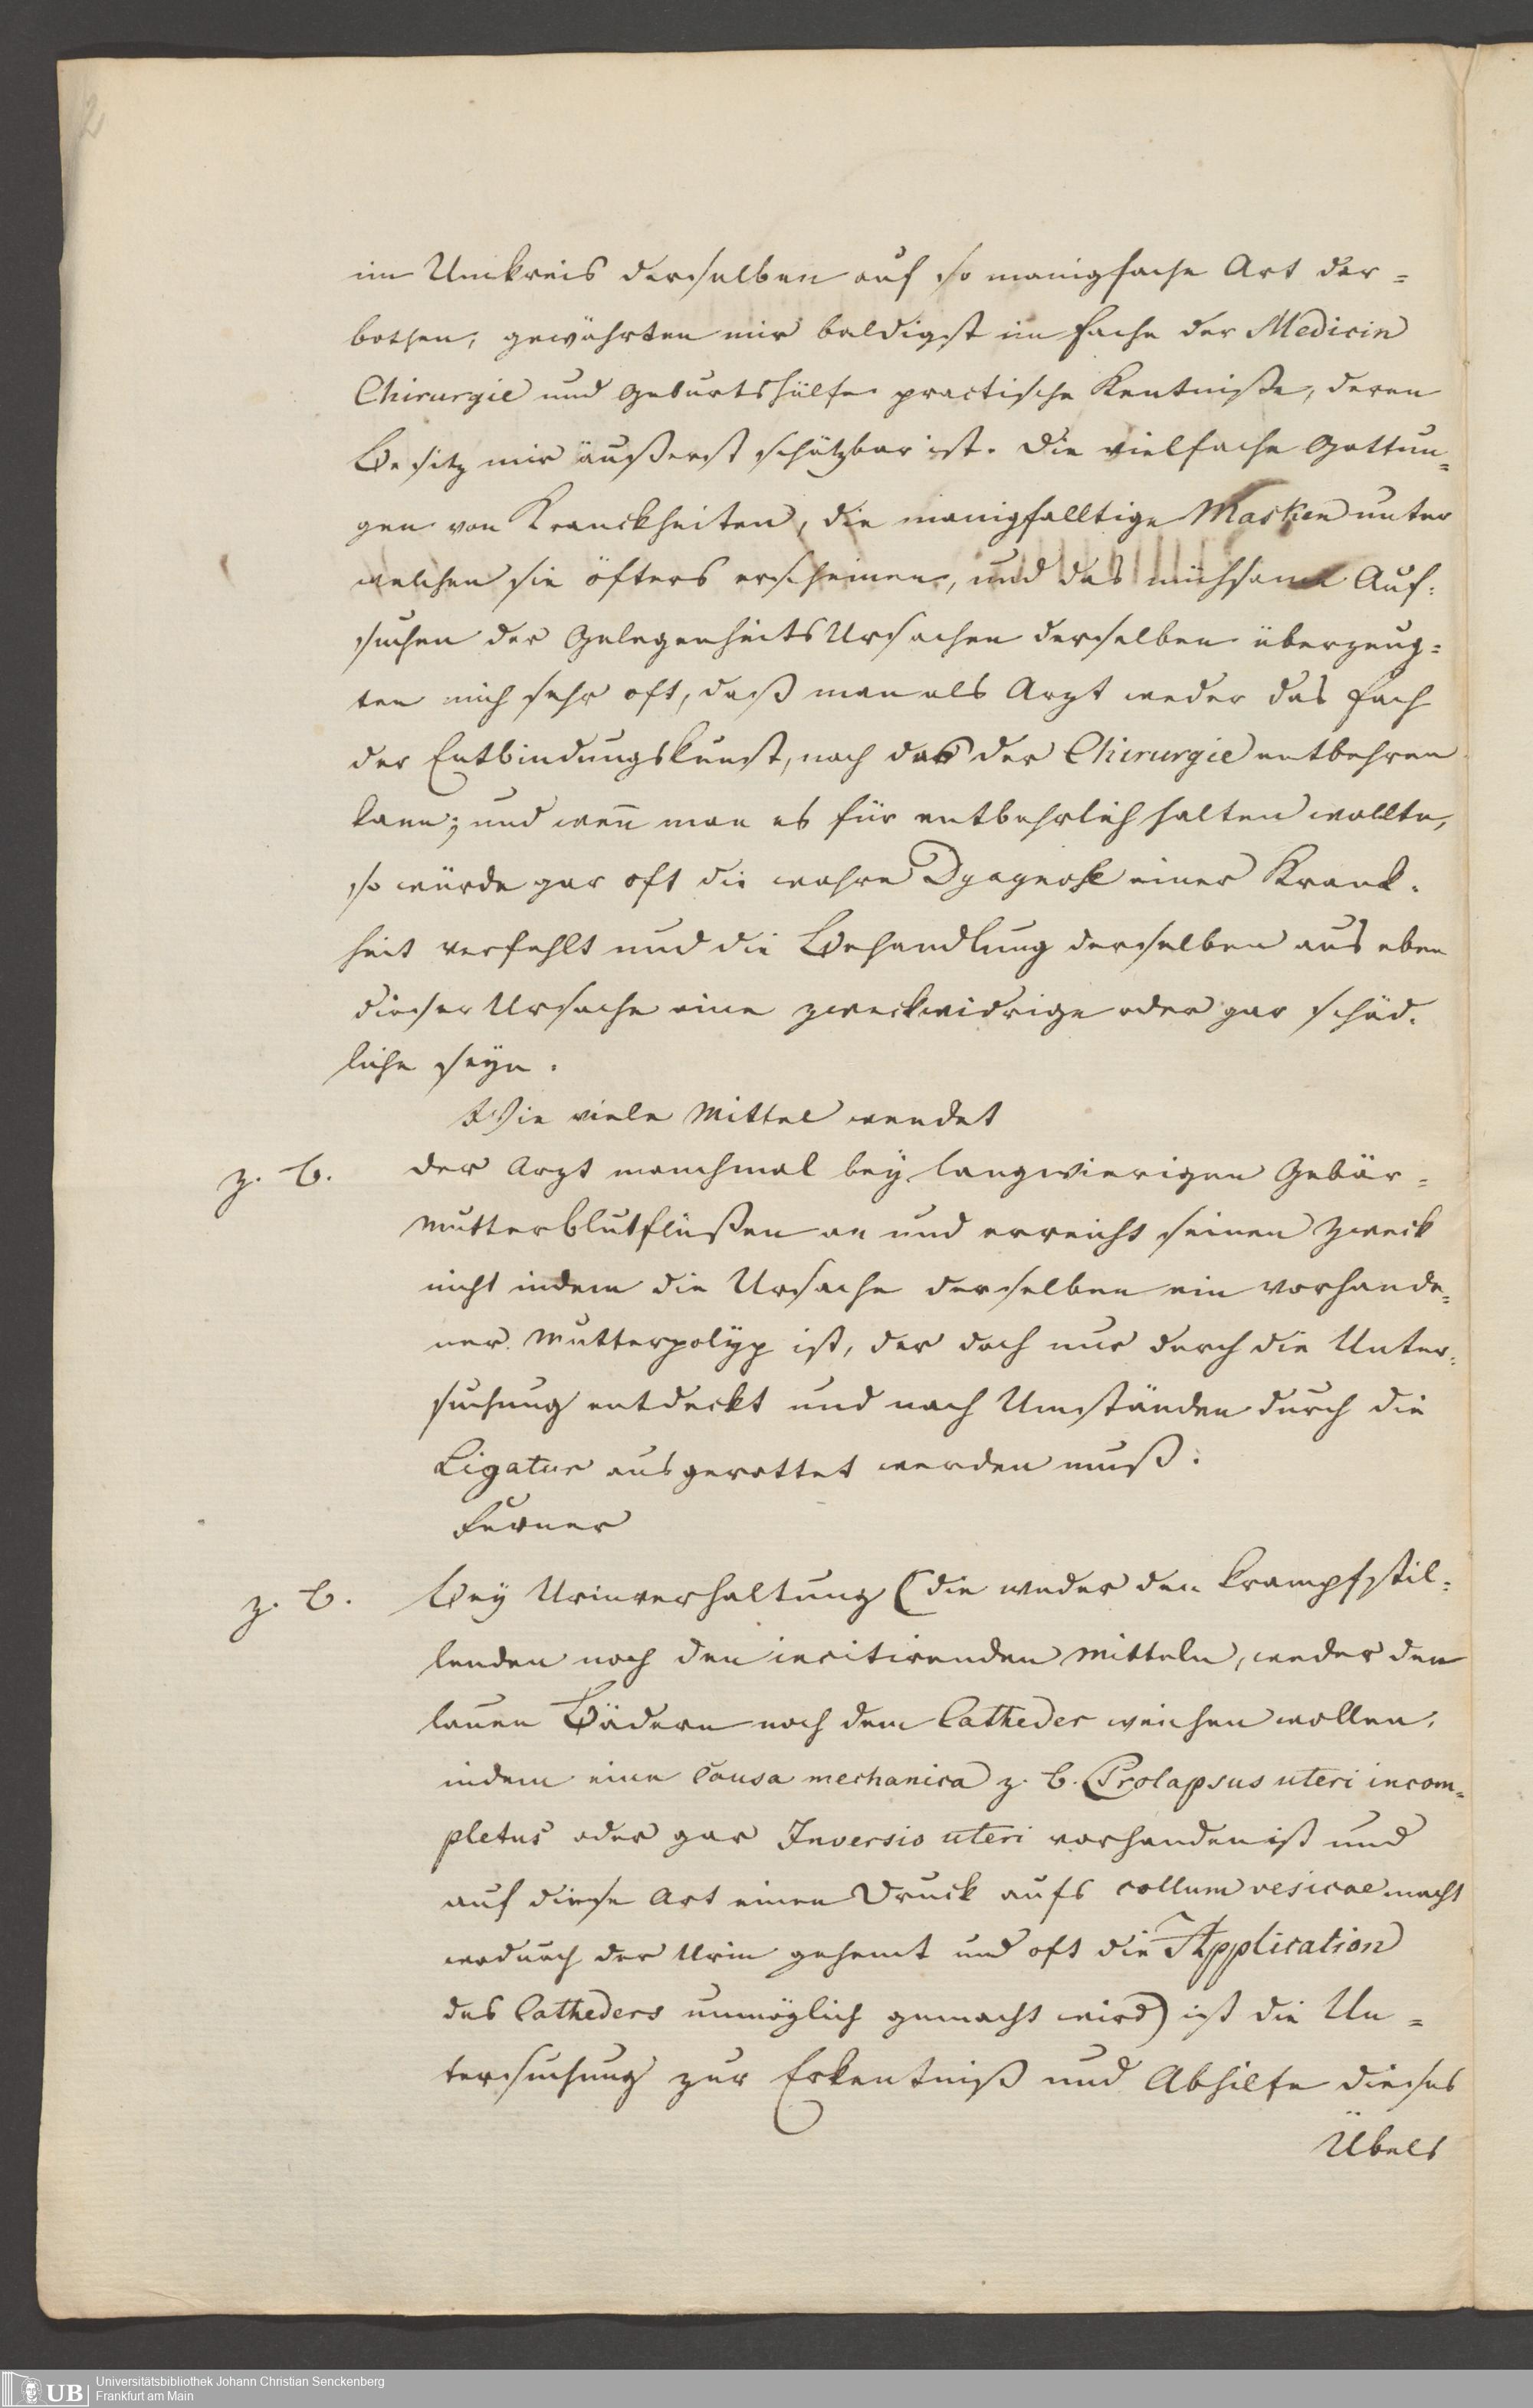 2
im Umkreis derselben auf so manigfache Art dar=
bothen, gewährten mir baldigst im Fache der Medicin
Chirurgie und Geburtshülfe practische Kentniße, deren
Besitz mir äußerst schätzbar ist. Die vielfache Gattun=
gen von Kranckheiten, die manigfalltige Masken unter
welchen sie öfters erscheinen, und das mühsame Auf=
suchen der GelegenheitsUrsachen derselben überzeug=
ten mich sehr oft, daß man als Arzt weder das Fach
der Entbindungskunst, noch das der Chirurgie entbehren
kann; und wen̅ man es für entbehrlich halten wollte,
so würde gar oft die wahre Dyagnose einer Krank=
heit verfehlt und die Behandlung derselben aus eben
dieser Ursache eine zweckwidrige oder gar schäd=
liche seyn.
Wie viele Mittel wendet
z. B. der Arzt manchmal bey langwierigen Gebär=
mutterblutflüßen an und erreicht seinen Zweck
nicht indem die Ursache derselben ein vorhande=
ner Mutterpolÿp ist, der doch nur durch die Unter=
suchung entdeckt und nach Umständen durch die
Ligatur ausgerottet werden muß.
Ferner
z. B. Bey Urinverhaltung (die weder den krampfstil=
lenden noch den incitirenden Mitteln, weder den
lauen Bädern noch dem Catheder weichen wollen,
indem eine Causa mechanica z. B. Prolapsus uteri incom=
pletus oder gar Inversio uteri vorhanden ist und
auf diese Art einen Druck aufs collum vesicae macht
wodurch der Urin gehemt und oft die Application
des Catheders unmöglich gemacht wird) ist die Un=
tersuchung zur Erkentniß und Abhilfe dieses
Übels
UB Universitätsbibliothek Johann Christian Senckenberg
Frankfurt am Main